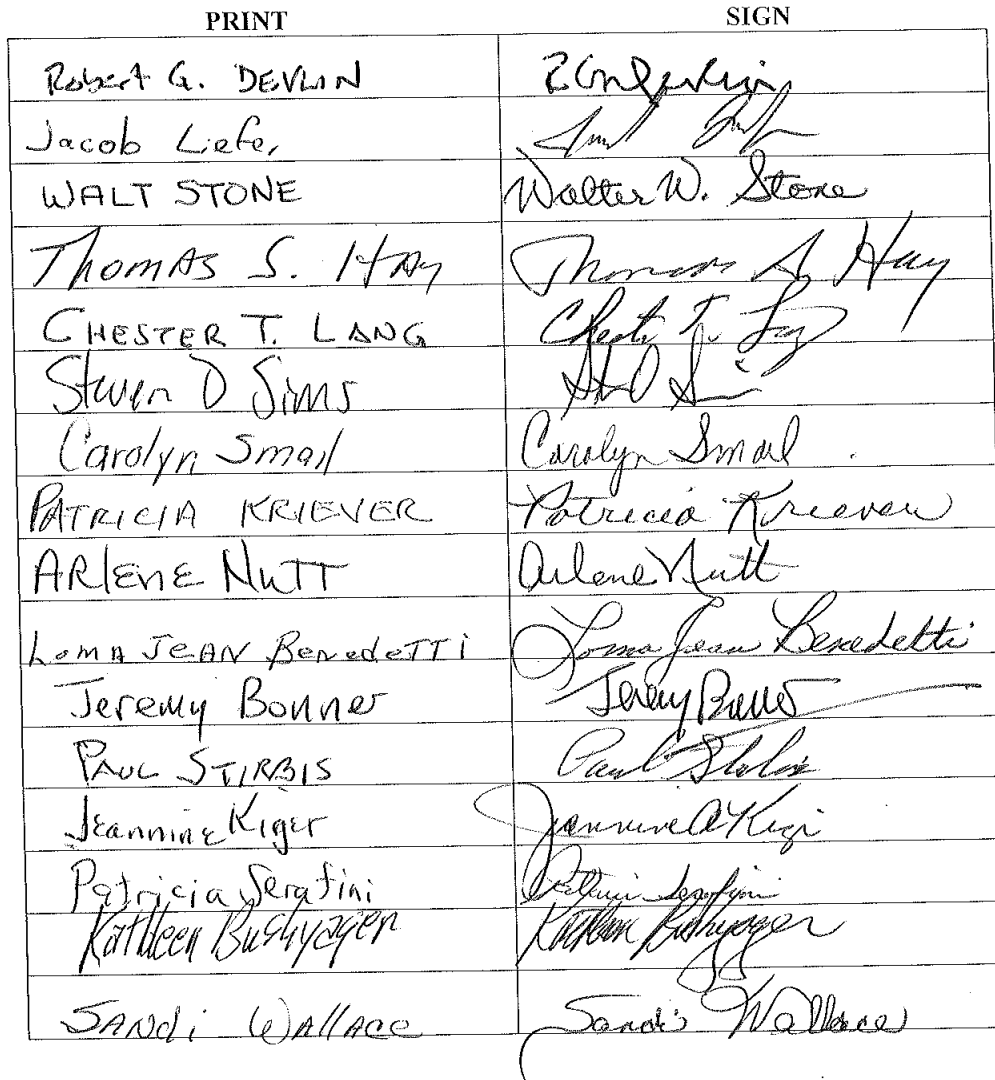 PRINT SIGN
Robert G. DEVLIN
Jacob Liefer
WALT STONE Walter W. Stone
Thomas S. HAy Thomas S. Hay
CHESTER T. LANG Chester T. Lang
Steven D Sims
Carolyn Smail Carolyn Smail
PATRICIA KRIEVER Patricia Kriever
ARlENE NuTT Arlene Nutt
LomA JEAN BenedeTTi Loma Jean Benedetti
Jeremy Bonner Jeremy Bonner
PAUL STIRBIS Paul Stirbis
JeanninE Kiger Jeannine A Kiger
Patricia Serafini Patricia Serafini
Kathleen Bushyager Kathleen Bushyager
SANdi WAllACE Sandi Wallace